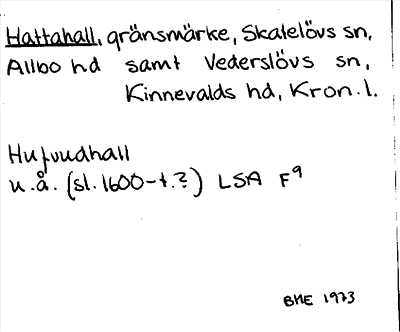 Hattahall, gränsmärke, Skatelövs sn,
Allbo hd samt Vederslövs sn,
Kinnevalds hd, Kron.l.
Hufvudhall
u.å. (sl. 1600-t.?) LSA F⁹
BHE 1973